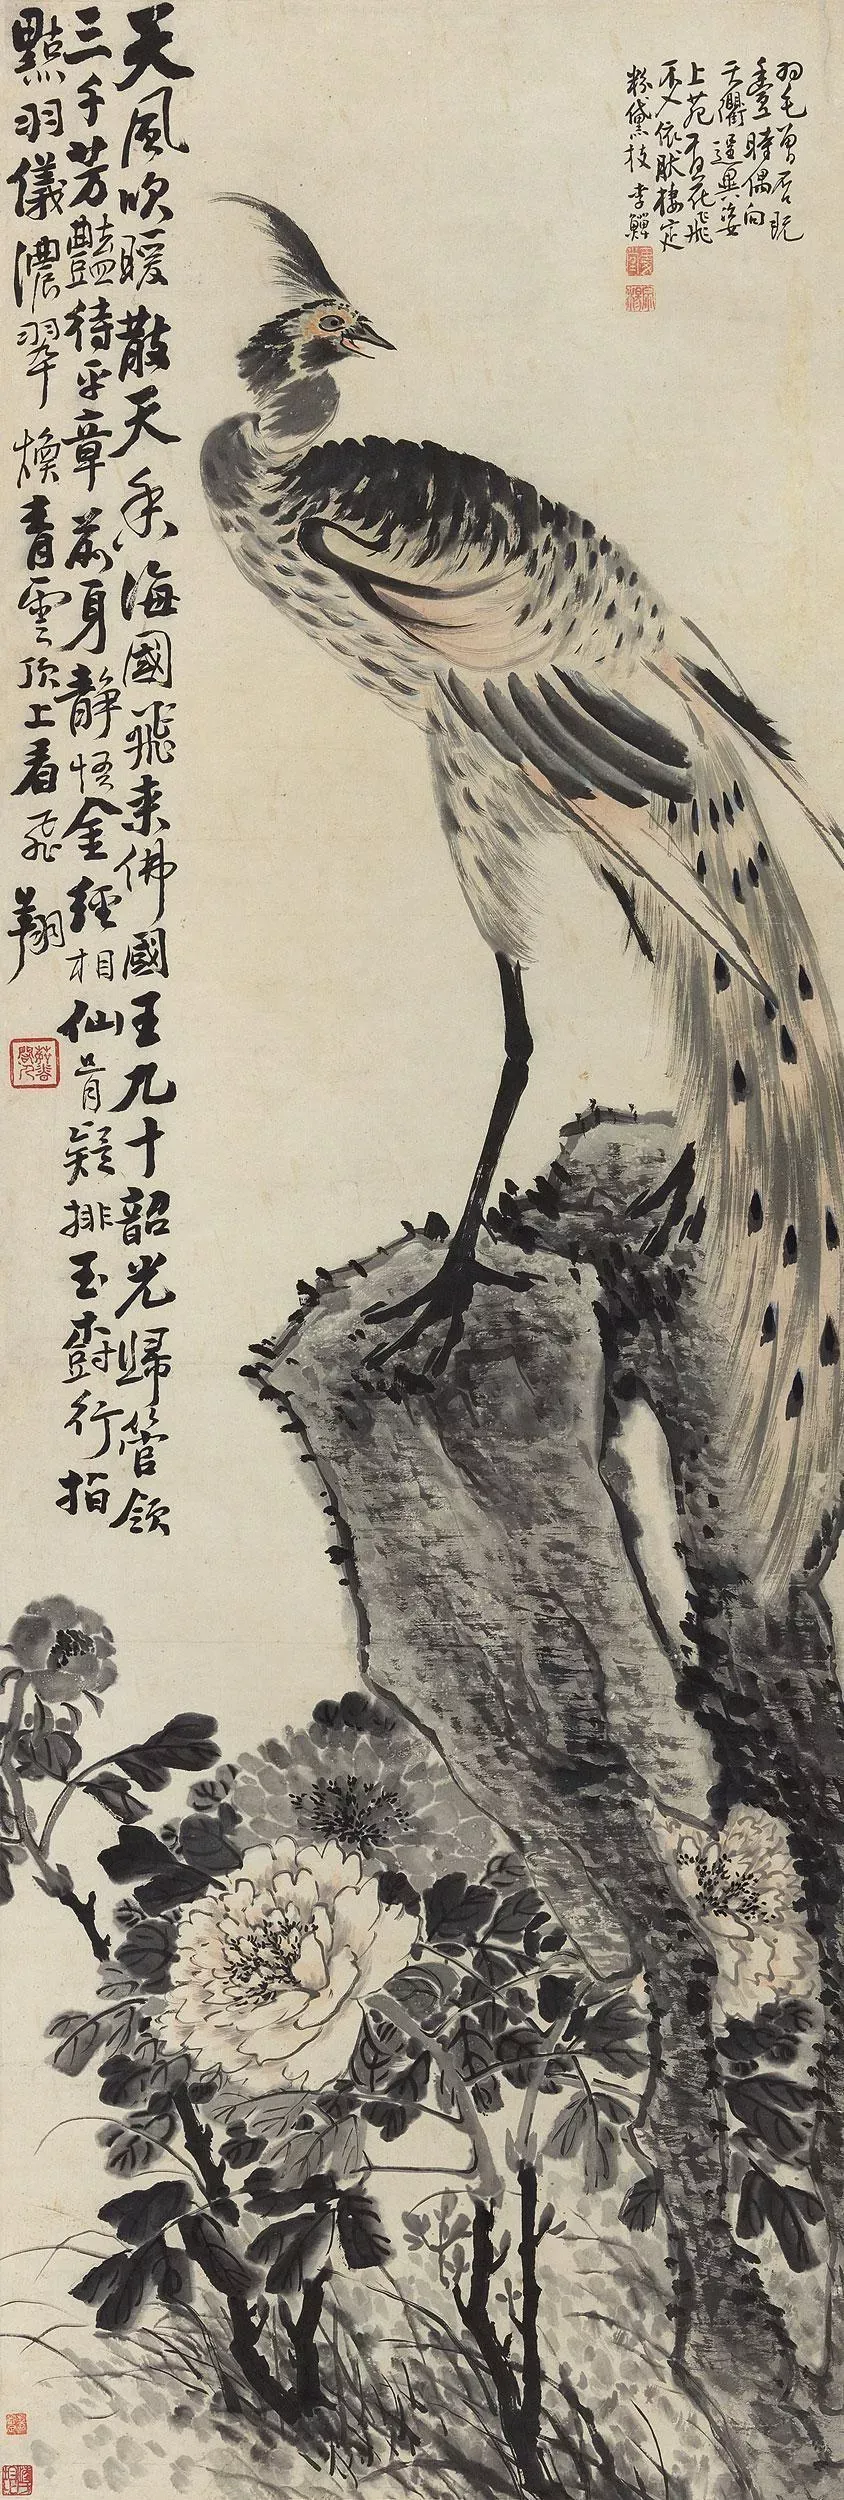 羽毛曾否既
豐時偶向
天衢逞異姿
上苑百花飛
不入依肰棲定
粉黛枝 李鱓
天風吹暖散天香海國飛來佛國王九十韶光歸管領
三千芳豔待平章前身靜悟金經相仙骨疑排玉樹行拍
點羽儀濃翠煥青雲頂上看飛翔